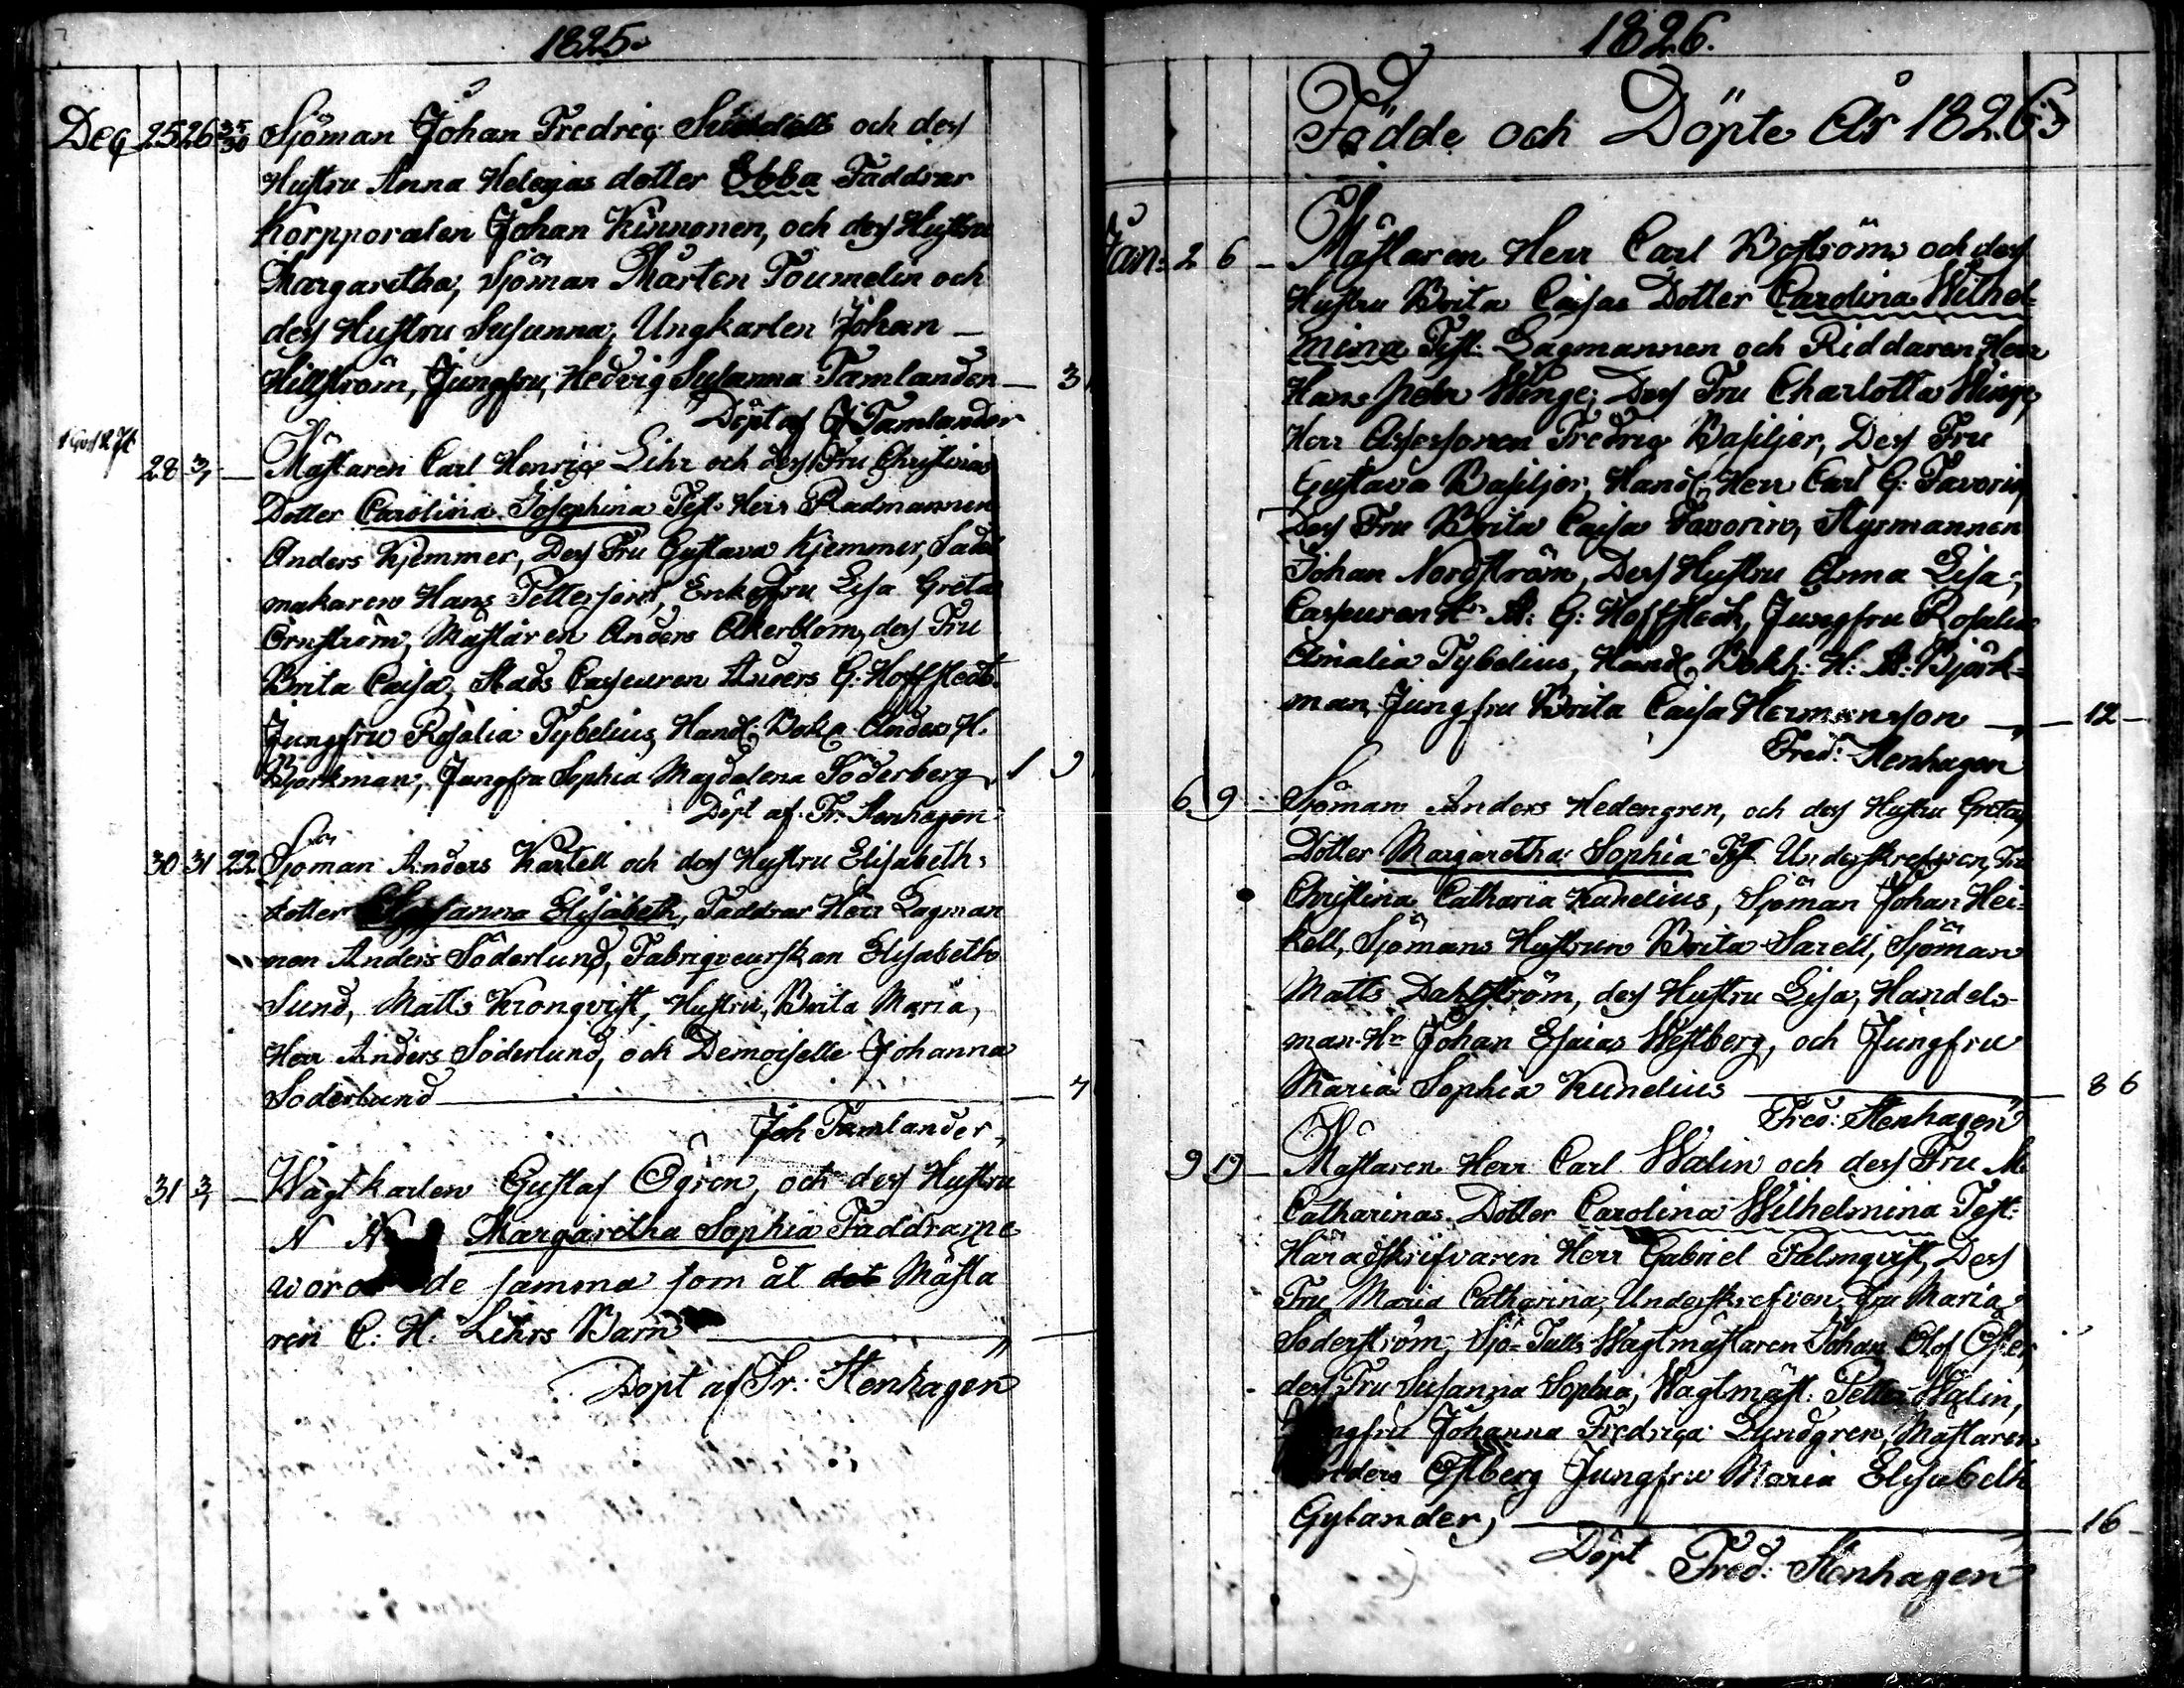 1825.
Dec 25 26 Sjöman Johan Fredric och dess
Hustru Anna Helenas dotter Ebba Faddrar
Korpporalen Johan Kinnonen, och dess Hustru
Margaretha, Sjöman Mårten Toumelin och
dess Hustru Susanna, Ungkarlen Johan
Hillström, Jungfru Hedvig Susanna Tamlander — 3
Döpt af J Tamlander
28 3/1 — Mästaren Carl Henric Lihr och dess Fru Christinas
Dotter Carolina Josephina Test. Herr Radmannen
Anders Kjemmer, Dess Fru Gustava Kjemmer, Sadel
makaren Hans Pettersson, Enkefru Lisa Greta
Örnström, Mästaren Anders Åkerblom, dess Fru
Brita Caisa, Stads Casseuren Anders G. Hoffstedt
Jungfru Rosalia Tybelius, Handl. Bokh Anders H.
Björkman, Jungfru Sophia Magdalena Söderberg, 1
Döpt af Fr. Stenhagen
30 31 22 Sjöman Anders Kartell och dess Hustru Elisabeths
dotter Susanna Elisabeth, Faddrar Herr Lagman
nen Anders Söderlund, Fabriqveurskan Elisabeth
Lund, Matts Kronqvist, Hustru Brita Maria,
Herr Anders Söderlund, och Demoiselle Johanna
Söderlund — 7
Joh Tamlander
31 3/1 — Wagtkarlen Gustaf Ögren, och dess Hustru
N N Margaretha Sophia Faddrarne
woro de samma som åt det Mästa
ren C. H. Lihrs Barn —
Döpt af Fr: Stenhagen
1826.
Födde och Döpte År 1826
Jan: 2 6 — Mästaren Herr Carl Boström och dess
Hustru Brita Caisas Dotter Carolina Wilhel=
mina Test: Lagmannen och Riddaren Herr
Hans Petter Winge, Dess Fru Charlotta Winge,
Herr Assessoren Fredric Basilier, Dess Fru
Gustava Basilier, Handl. Herr Carl G: Favorin
Dess Fru Brita Caisa Favorin, Styrmannen
Johan Nordström, Dess Hustru Anna Lisa,
Casseuren Hr A: G: Hoffstedt, Jungfru Rosalia
Amalia Tybelius, Handl. Bokh: H: A: Björk=
man, Jungfru Brita Caisa Hermansson — 12
Fred: Stenhagen
6 9 — Sjöman Anders Hedengren, och dess Hustru Gretas
Dotter Margaretha Sophia Test. Underskrefven, Fru
Christina Catharia Kunelius, Sjöman Johan Hei=
kell, Sjömans Hustrun Brita Sarell, Sjöman
Matts Dahlström, dess Hustru Lisa, Handels=
man Hr Johan Esaias Westberg, och Jungfru
Maria Sophia Kunelius — 8 6
Fred: Stenhagen
9 19 — Mästaren Herr Carl Walin och dess Fru M
Catharinas Dotter Carolina Wilhelmina Test:
Häradskrifvaren Herr Gabriel Palmqvist, Dess
Fru Maria Catharina, Underskrefven, Fru Maria
Söderström, Sjö-Tulls Wagtmästaren Johan Olof
dess Fru Susanna Sophia, Wagtmäst: Petter Walin,
Jungfru Johanna Fredrica Lundgren, Mästaren
Anders Östberg Jungfru Maria Elisabeth
Gylander, — 16
Döpt Fred: Stenhagen